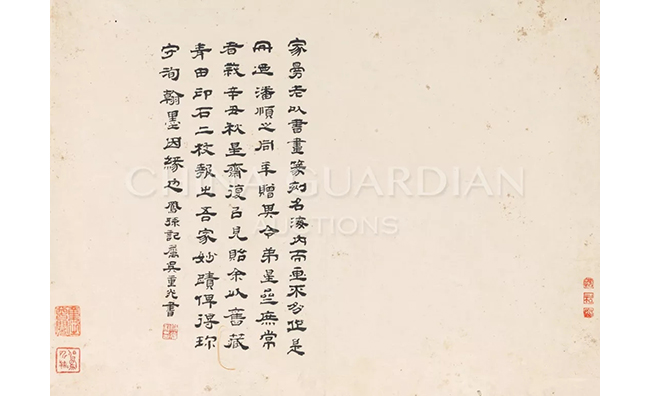 家曼老以書畫篆刻名海内而畫不是
冊迺潘順之同年贈其令弟星齋庶常
者歲辛丑秋星齋復以見貽余以舊藏
青田印石二枚報之吾家妙蹟俾得珎
守洵翰墨因緣也 記屬吳重光書
CHINA GUARDIAN
AUCTIONS